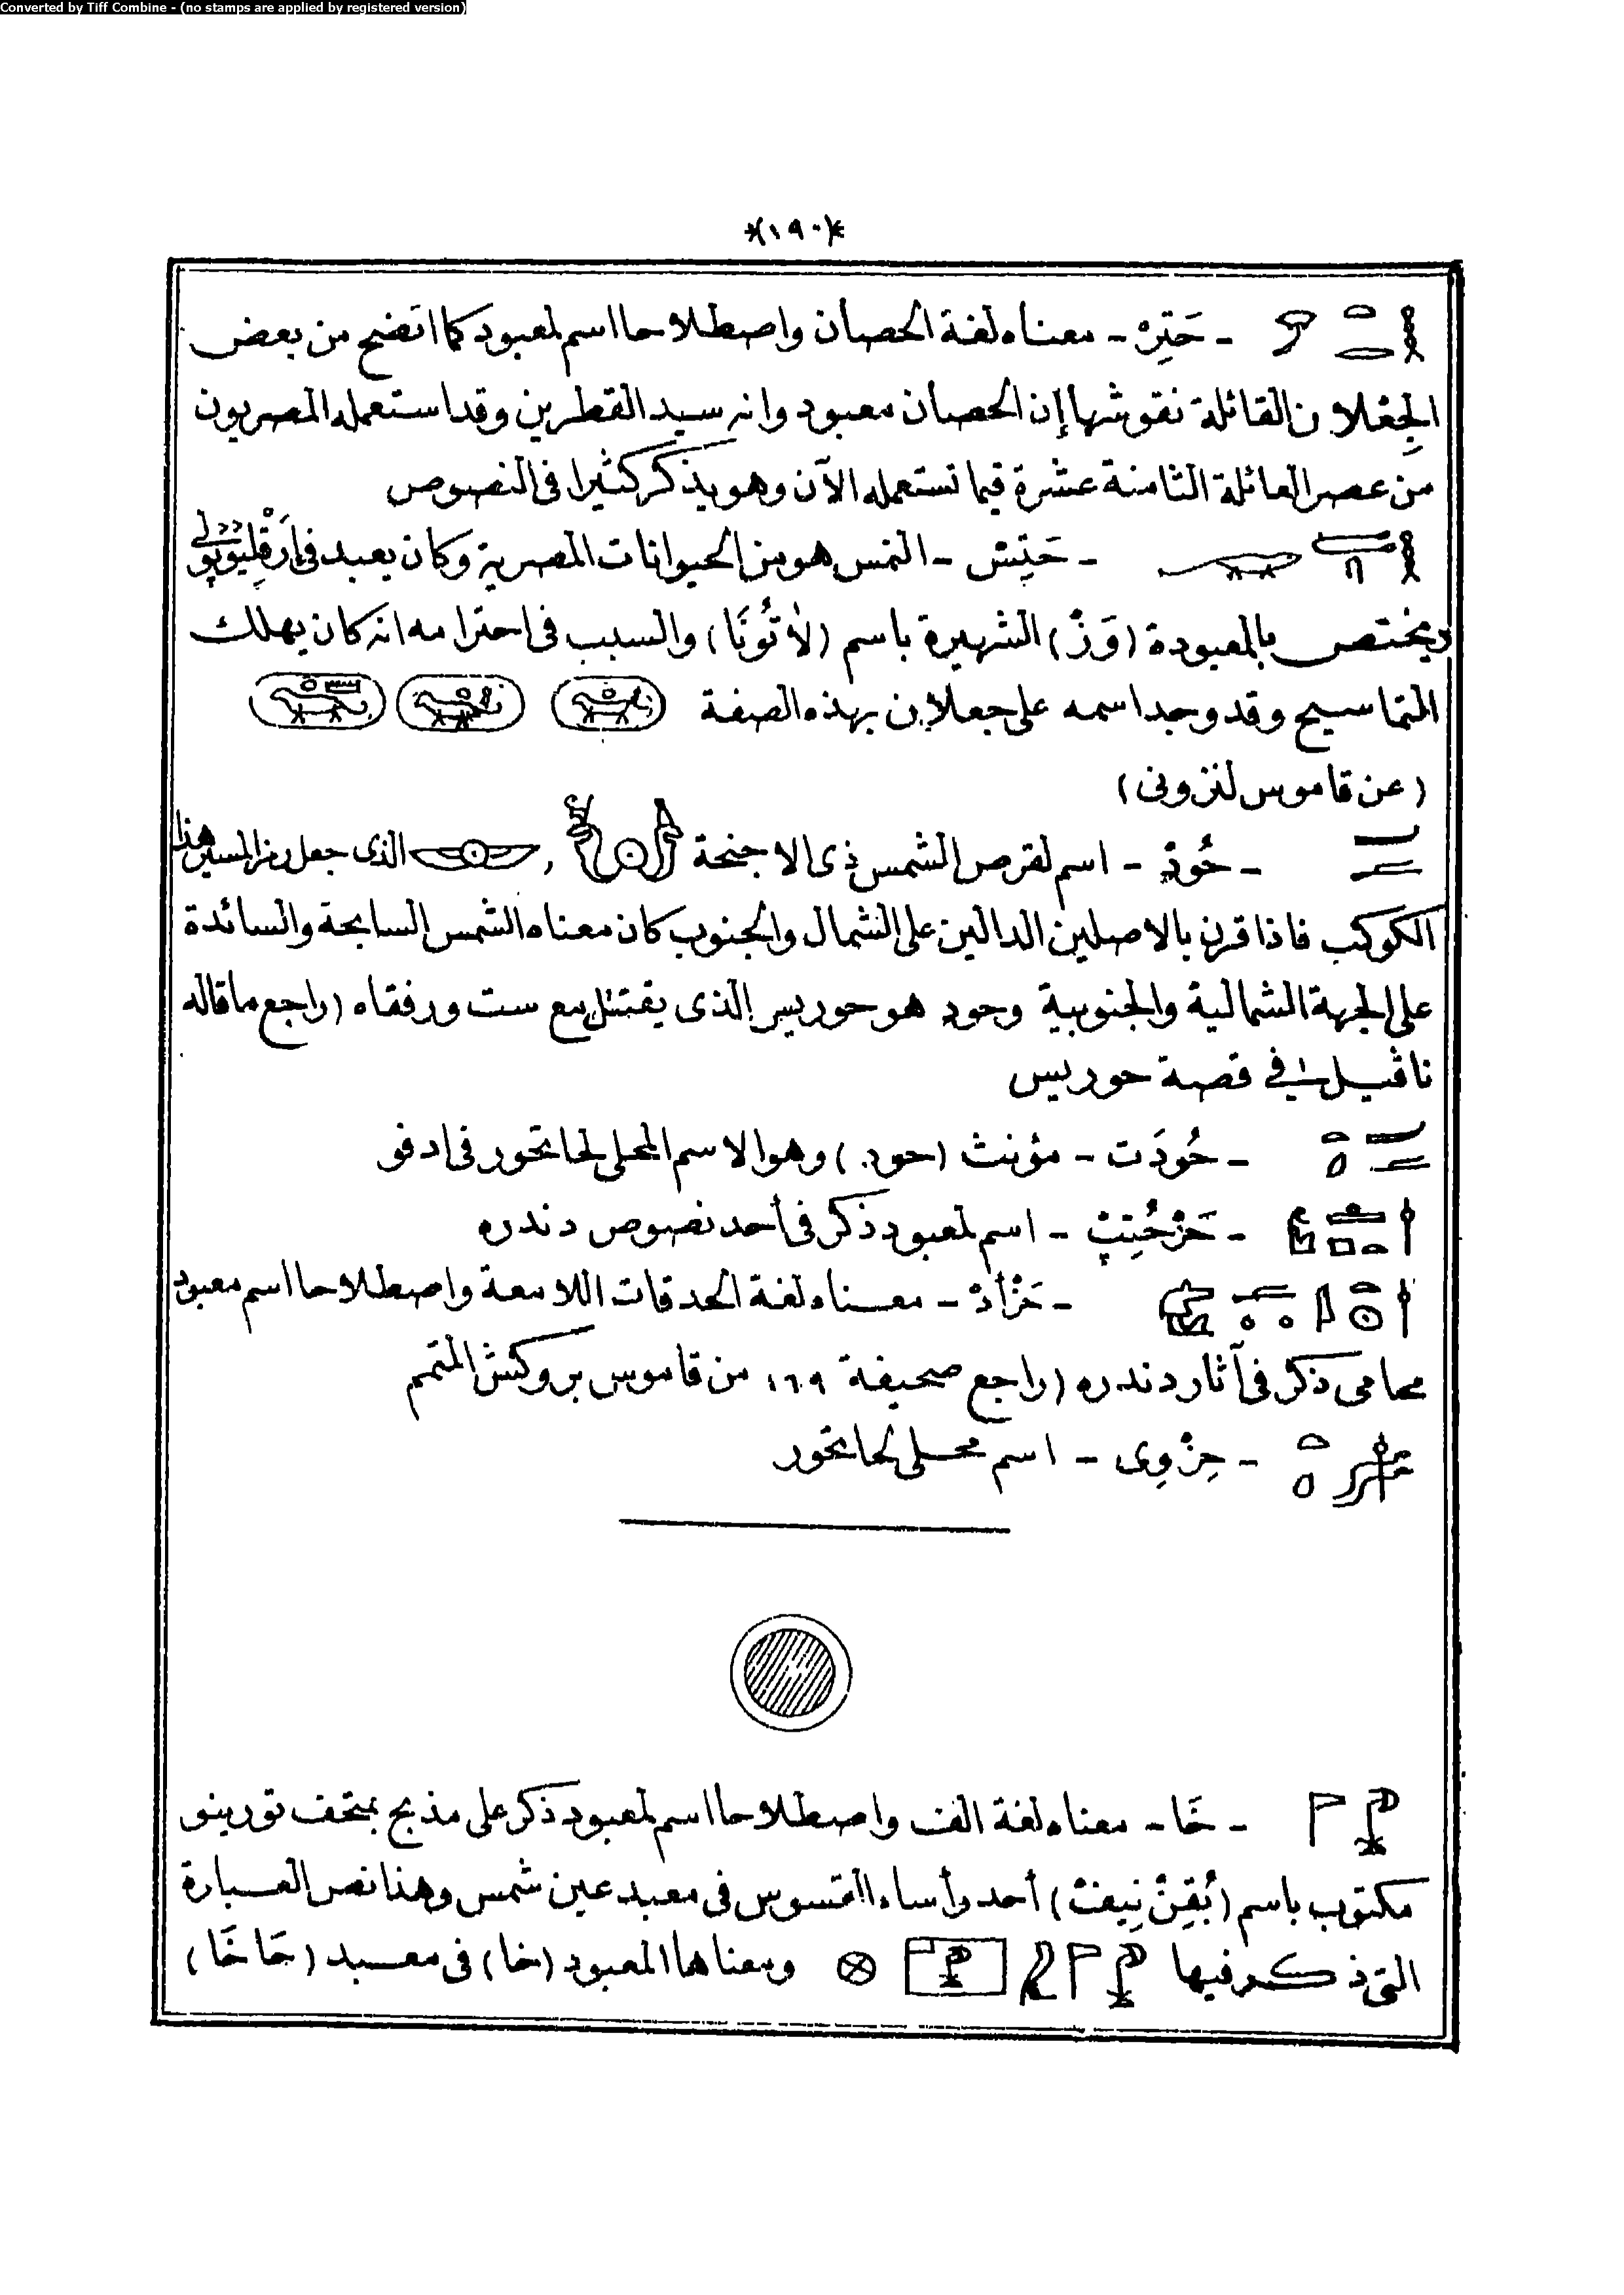 Converted by Tiff Combine - (no stamps are applied by registered version)
*(١٩٠)*
- حَتِرْ - معناه لغة الحصان واصطلاحا اسم لمعبود كما اتضح من بعض
الجِعْلان القائلة نقوشها إن الحصان معبود وانه سيد القطرين وقد استعمله المصريون
من عصر العائلة الثامنة عشرة فيما تستعمله الآن وهو يذكر كثيرا فى النصوص
- حَتِرْش - النمس هو من الحيوانات المصرية وكان يعبد فى
ويختص بالمعبودة (وَزْ) الشهيرة باسم (لاٰتُونَا) والسبب فى احترامه انه كان يهلك
التماسيح وقد وجد اسمه على جعلان بهذه الصفة
(عن قاموس لنزونى)
- حُودْ - اسم لقرص الشمس ذى الاجنحة , الذى جعل رمزا لمسير هذا
الكوكب فاذا قرن بالاصلين الدالين على الشمال والجنوب كان معناه الشمس السابحة والسائدة
على الجهة الشمالية والجنوبية وحود هو حوريس الذى يقتتل مع ست ورفقاه (راجع ما قاله
ناڤيل فى قصة حوريس
- حُودَت - مؤنث (حود) وهو الاسم المحلى لحاتحور فى ادفو
- حَزْحُتِپْ - اسم لمعبود ذكر فى أحد نصوص دندره
- حَزْأدْ - معناه لغة الحدقات اللامعة واصطلاحا اسم معبود
محامى ذكر فى آثار دندره (راجع صحيفة من قاموس بروكش المتمم
- حِزْوِى - اسم محلى لحاتحور
- خَا - معناه لغة الف واصطلاحا اسم لمعبود ذكر على مذبح بمتحف تورينو
مكتوب باسم أحد رأساء القسوس فى معبد عين شمس وهذا نص العبارة
التى ذكر فيها ومعناها المعبود (خا) فى معبد (حَاخَا)